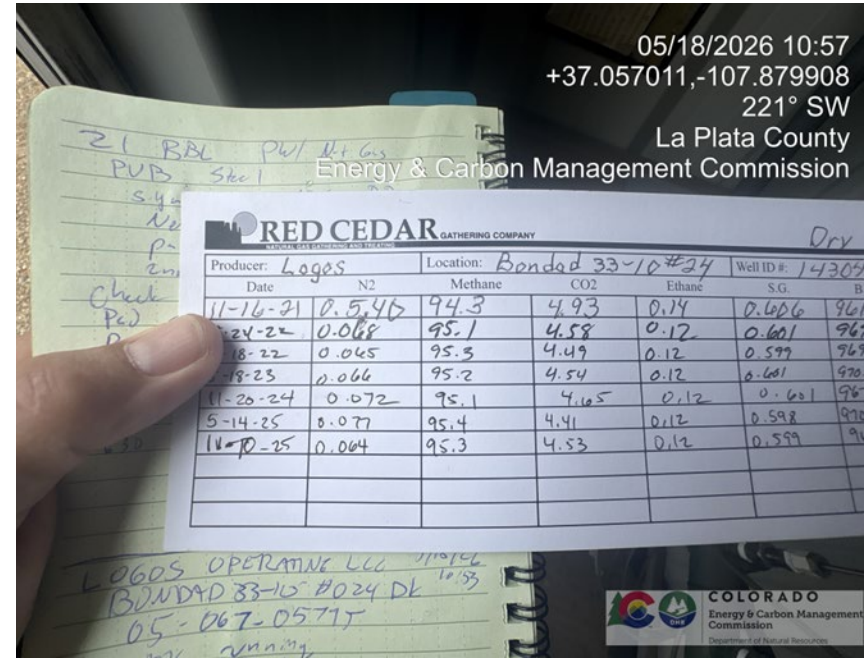 05/18/2026 10:57
+37.057011,-107.879908
221° SW
La Plata County
Energy & Carbon Management Commission
21 BBL PW/ Nat Gas
PVB Steel
RED CEDAR GATHERING COMPANY
NATURAL GAS GATHERING AND TREATING
Dry
Producer: Logos Location: Bondad 33-10 #24 Well ID #: 14307
Date N2 Methane CO2 Ethane S.G. B
11-16-21 0.540 94.3 4.93 0.14 0.606 961
-24-22 0.068 95.1 4.58 0.12 0.601 96
18-22 0.065 95.3 4.49 0.12 0.599 969
-18-23 0.066 95.2 4.54 0.12 0.601 970.
11-20-24 0.072 95.1 4.65 0.12 0.601 96
5-14-25 0.077 95.4 4.41 0.12 0.598 970
11-10-25 0.064 95.3 4.53 0.12 0.599
Check
LOGOS OPERATING LLC
10:53
BONDAD 33-10 #024 DK
05-067-05775
running
COLORADO
Energy & Carbon Management
Commission
Department of Natural Resources